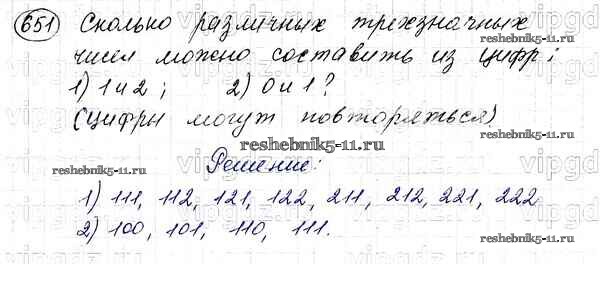 651 Сколько различных трехзначных
чисел можно составить из цифр:
1) 1 и 2; 2) 0 и 1?
(цифры могут повторяться)
reshebnik5-11.ru
Решение:
reshebnik5-11.ru
1) 111, 112, 121, 122, 211, 212, 221, 222
2) 100, 101, 110, 111.
reshebnik5-11.ru